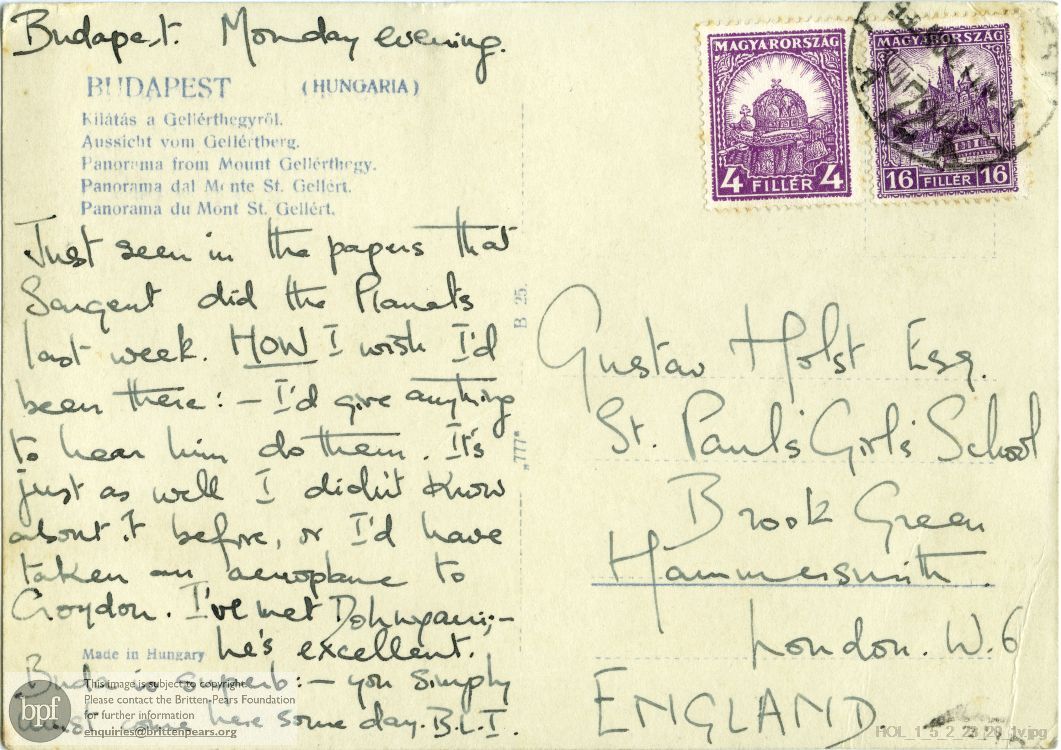 Budapest. Monday evening.
BUDAPEST (HUNGARIA)
Kilátás a Gellérthegyről.
Aussicht vom Gellértberg.
Panorama from Mount Gellérthegy.
Panorama dal Monte St. Gellért.
Panorama du Mont St. Gellért.
Just seen in the papers that
Sargent did the Planets
last week. HOW I wish I'd
been there: – I'd give anything
to hear him do them. It's
just as well I didn't know
about it before, or I'd have
taken an aeroplane to
Croydon. I've met Dohnyani; –
he's excellent.
Made in Hungary
Buda is superb: – you simply
must come here some day. B.L.I.
B 25.
„777"
MAGYARORSZÁG
4 FILLÉR 4
MAGYARORSZÁG
16 FILLÉR 16
Gustav Holst Esq.
St. Paul's Girls' School
Brook Green
Hammersmith.
London. W.6
ENGLAND.
bpf
This image is subject to copyright
Please contact the Britten-Pears Foundation
for further information
enquiries@brittenpears.org